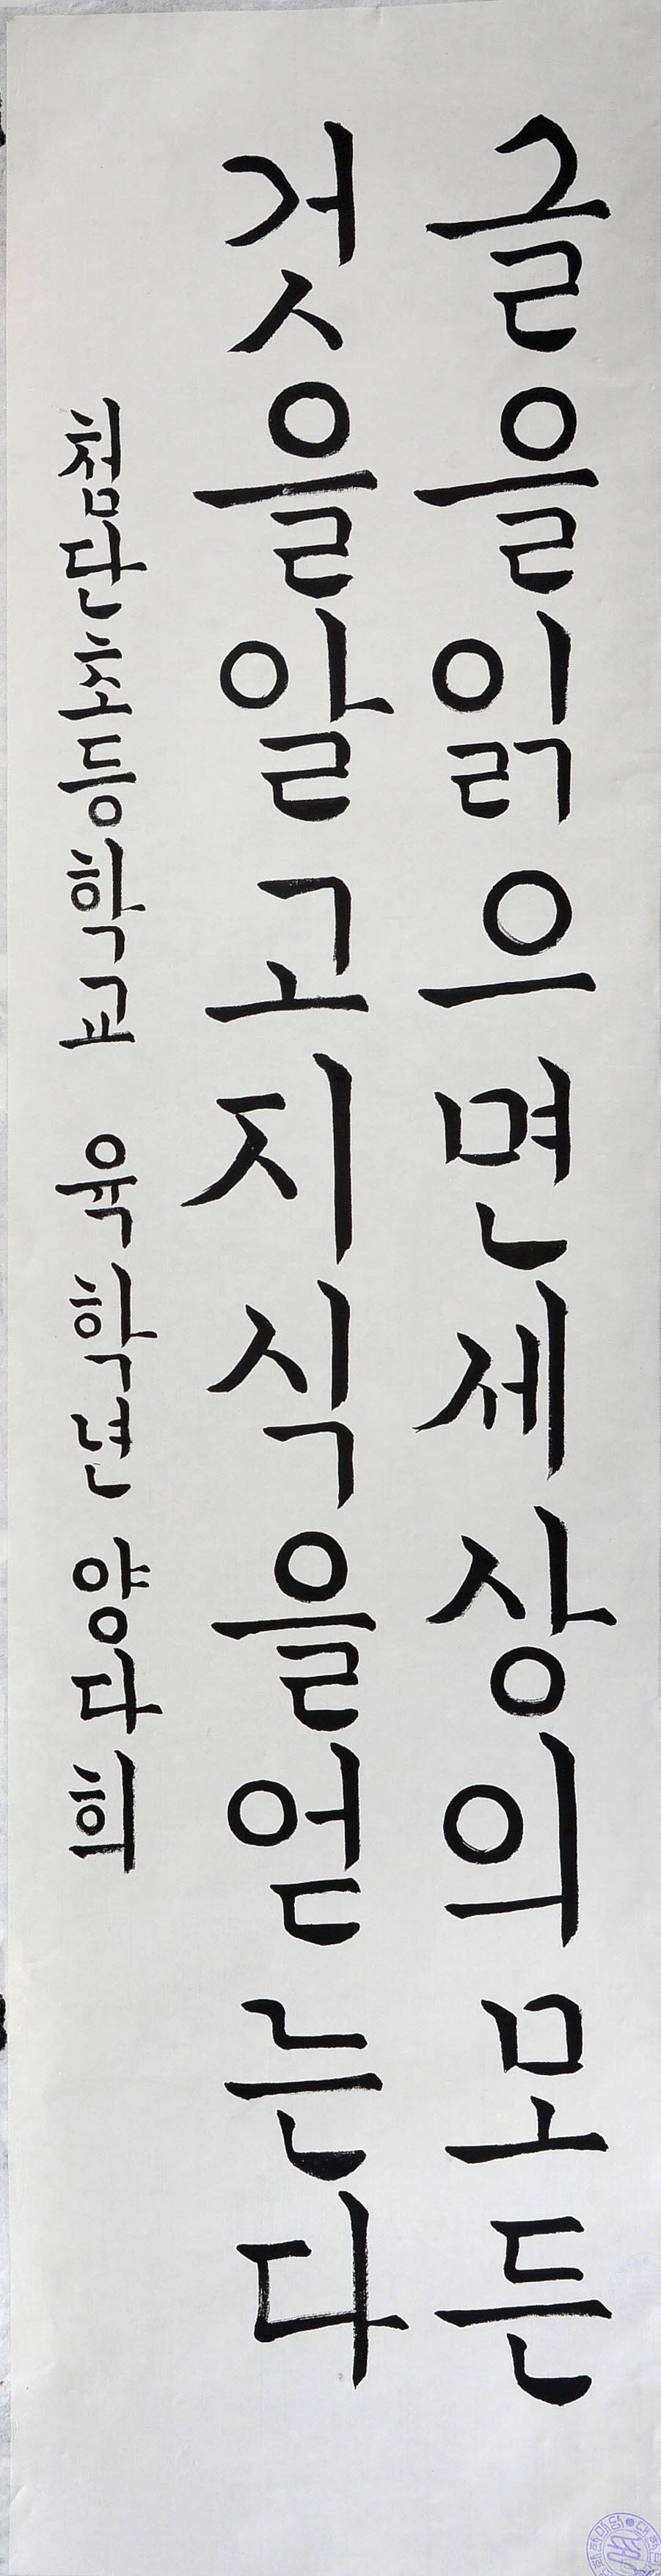 글을읽으면세상의모든
것을알고지식을얻는다
첨단초등학교 육학년 양다희